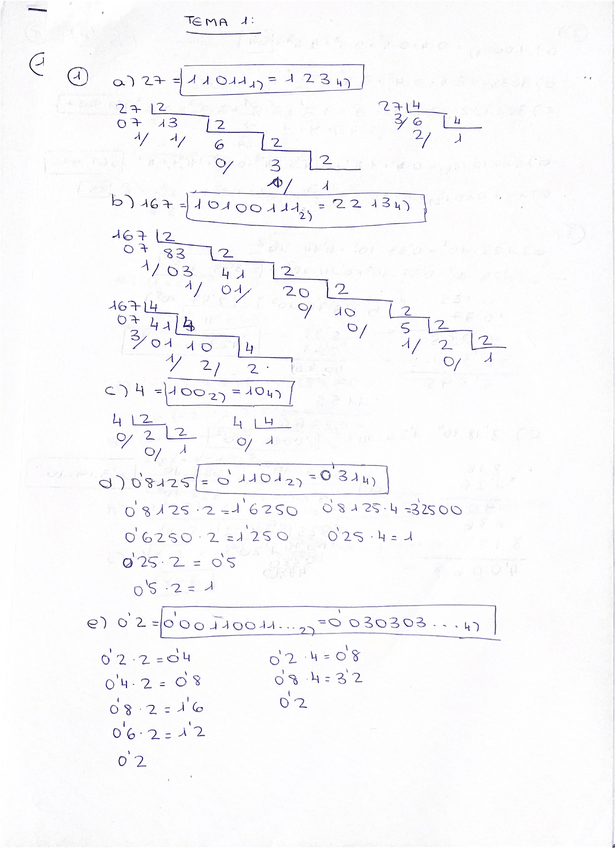 TEMA 1:
1
1
a) 27 = 11011₂) = 123₄)
27 2 27 4
07 13 2 3/ 6 4
1/ 1/ 6 2 2/ 1
0/ 3 2
1/ 1
b) 167 = 10100111₂) = 2213₄)
167 2
07 83 2
1/ 03 41 2
1/ 01/ 20 2
167 4 0/ 10 2
07 41 4 0/ 5 2
3/ 01 10 4 1/ 2 2
1/ 2/ 2 0/ 1
c) 4 = 100₂) = 10₄)
4 2 4 4
0/ 2 2 0/ 1
0/ 1
d) 0'8125 = 0'1101₂) = 0'31₄)
0'8125 · 2 = 1'6250 0'8125 · 4 = 3'2500
0'6250 · 2 = 1'250 0'25 · 4 = 1
0'25 · 2 = 0'5
0'5 · 2 = 1
e) 0'2 = 0'00110011...₂) = 0'030303...₄)
0'2 · 2 = 0'4 0'2 · 4 = 0'8
0'4 · 2 = 0'8 0'8 · 4 = 3'2
0'8 · 2 = 1'6 0'2
0'6 · 2 = 1'2
0'2